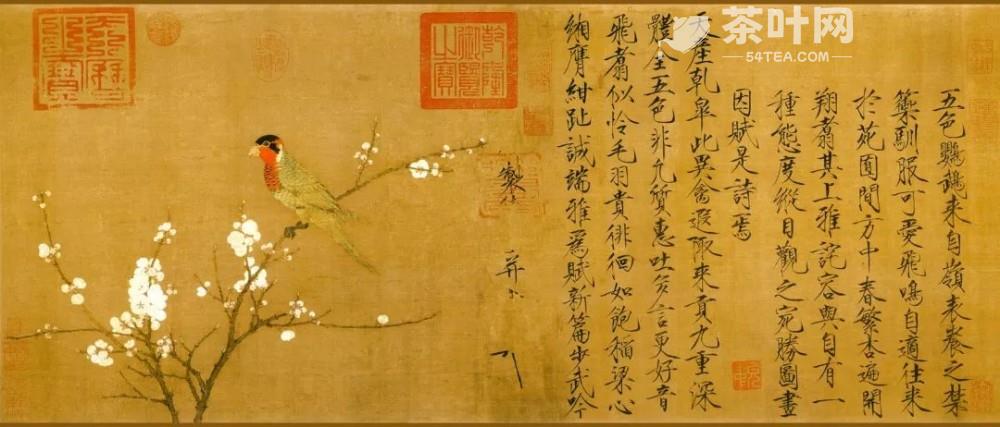 茶叶网
54TEA.COM
五色鸚鵡来自嶺表養之禁
籞馴服可愛飛鳴自適往来
於苑囿間方中春繁杏遍開
翔翥其上雅詫容與自有一
種態度縱目觀之宛勝圖畫
因賦是詩焉
天産乾皋此異禽遐陬来貢九重深
體全五色非凡質惠吐多言更好音
飛翥似怜毛羽貴徘徊如飽稲粱心
緗膺紺趾誠端雅爲賦新篇步武吟
製
并